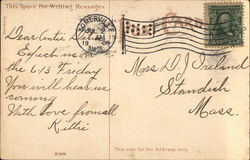 This Space For Writing Messages
SOMERVILLE
AM
Dear Auntie
Expect us on
the 6/3 Friday
You will hear us
coming
With love from all
Kittie
Mrs D. J. Ireland
Standish
Mass.
This side for the Address only